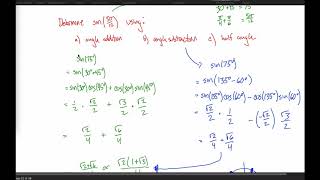 30°+45 = 75°
Determine sin(5π/12) using:
a) angle addition b) angle subtraction c) half angle
sin(75°)
= sin(30°+45°)
= sin(30°)cos(45°)+cos(30°)sin(45°)
= 1/2 · √2/2 + √3/2 · √2/2
= √2/4 + √6/4
sin(75°)
= sin(135°-60°)
= sin(135°)cos(60°) - cos(135°)sin(60°)
= √2/2 · 1/2 - (-√2/2) √3/2
= √2/4 + √6/4